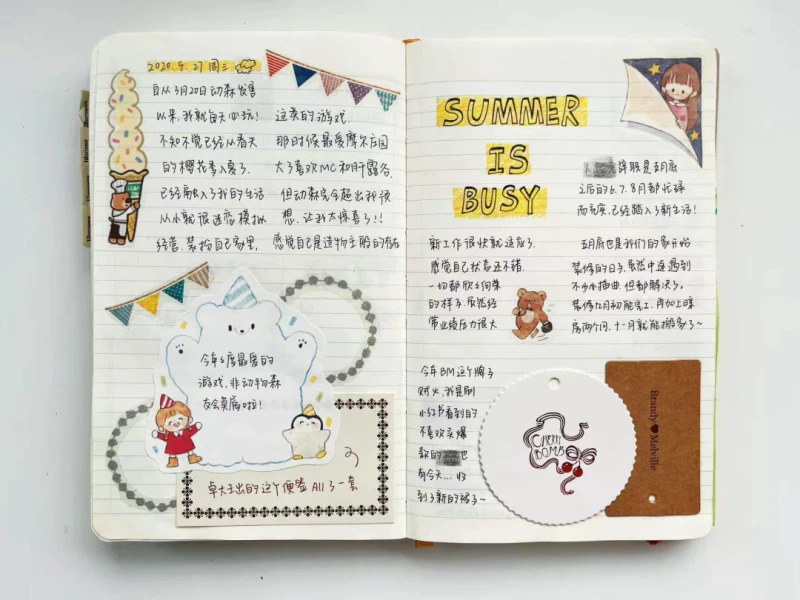 2020.5.27 周三
自从3月20日动森发售
以来,我就每天必玩!
不知不觉已经从春天
的樱花季入夏了.
已经融入了我的生活
从小就很迷恋模拟
经营、装扮自己家里,
这类的游戏.
那时候最爱摩尔庄园
大了喜欢MC和肝露谷,
但动森完全超出我预
想,让我太惊喜了!!
感觉自己是造物主般的存在
今年度最居的
游戏,非动物森
友会莫属啦!
卓大王出的这个便签 All了一套
SUMMER
IS
BUSY
辞职是五月底
之后的6.7.8月都忙碌
而充实,已经踏入了新生活!
新工作很快就适应了.
感觉自己状态还不错.
一切都欣欣向荣
的样子,虽然经
常业绩压力很大
五月底也是我们的家开始
装修的日子,虽然中途遇到
不少小插曲,但都解决了.
装修九月初能完工,再加上晾
房两个月,十一月就能搬家了~
今年BM这个牌子
好火,我是刷
小红书看到的
不喜欢买爆
款的 也
有今天...收
到了新的裙子~
CHERRI
BOMB
Brandy Melville